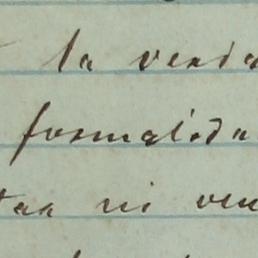 la venia
formalida
tan ni ven